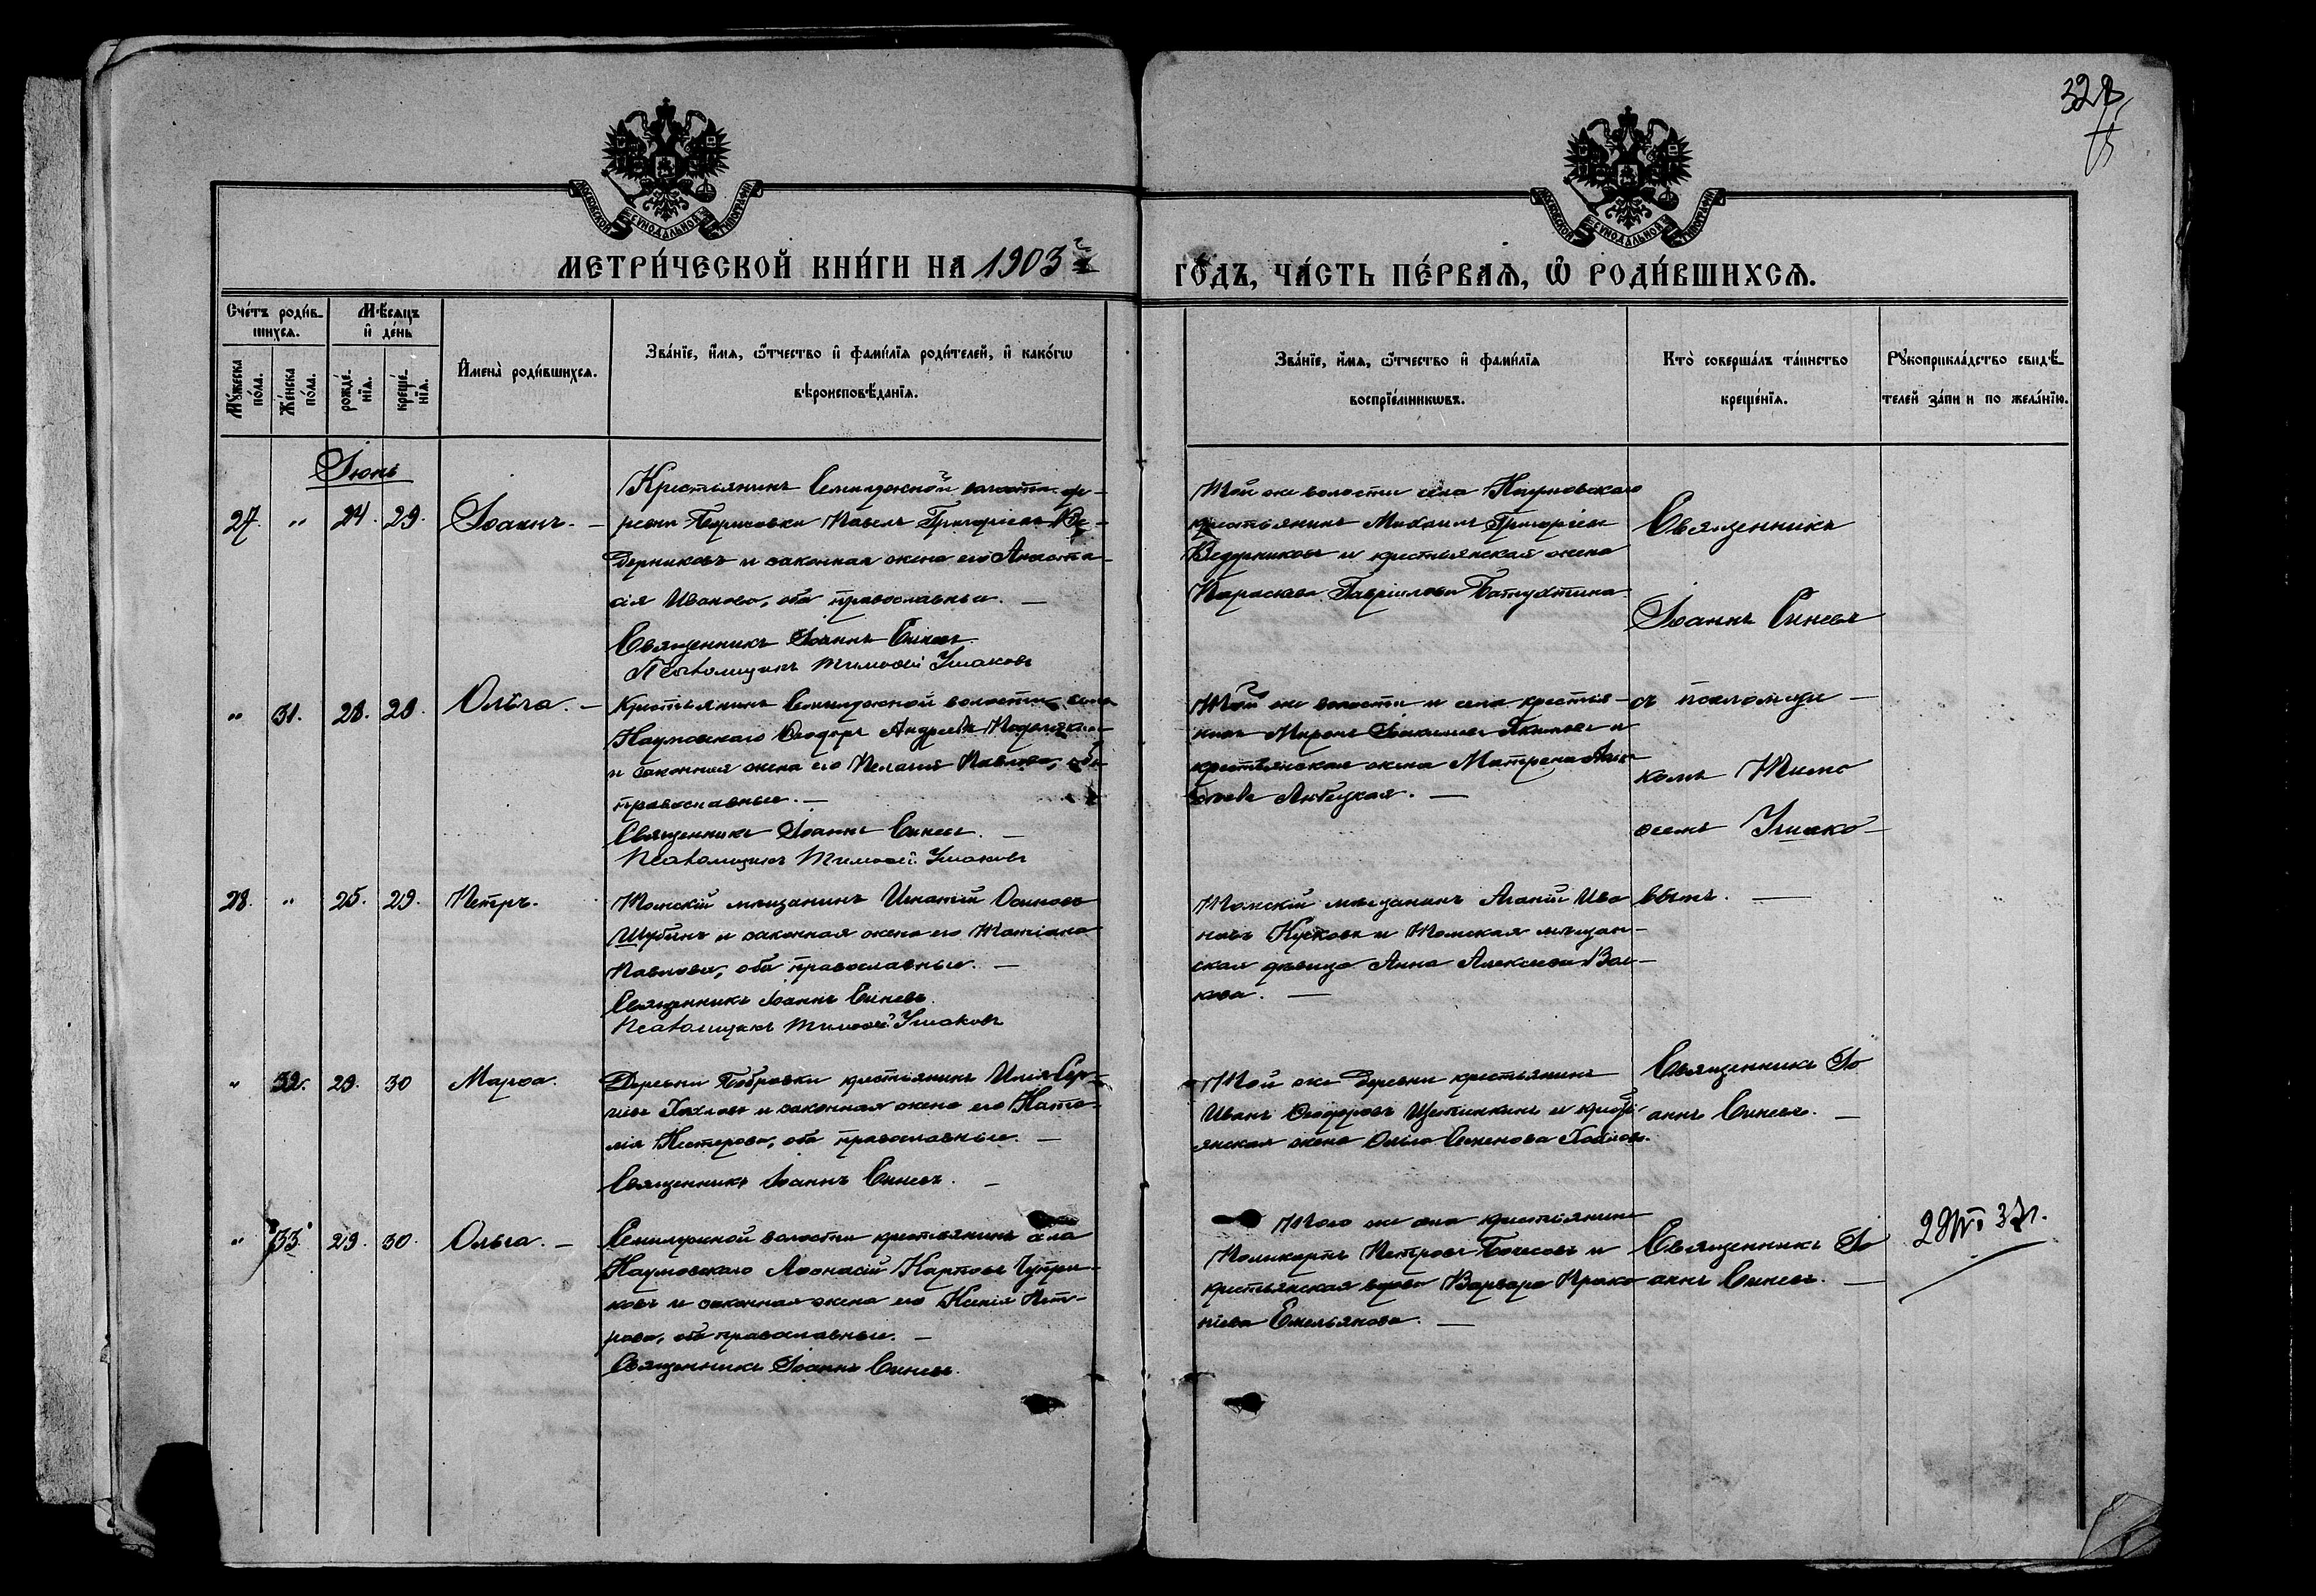 328
МОСКОВСКОЙ СѴНОДАЛЬНОЙ ТИПОГРАФІИ
МОСКОВСКОЙ СѴНОДАЛЬНОЙ ТИПОГРАФІИ
МЕТРИ́ЧЕСКОЙ КНИ́ГИ НА 1903 й
ГО́ДЪ, ЧА́СТЬ ПЕ́РВАѦ, Ѡ҆ РОДИ́ВШИХСѦ.
Сче́тъ роди́в-
шихсѧ.
Мѣ́сѧцъ
и҆ де́нь
Мꙋ́жеска по́ла.
Же́нска по́ла.
рожде́-нїѧ.
креще́-нїѧ.
И҆мена̀ роди́вшихсѧ.
Зва́нїе, и҆́мѧ, ѻ҆́тчество и҆ фами́лїѧ роди́телей, и҆ како́гѡ
вѣроисповѣ́данїѧ.
Зва́нїе, и҆́мѧ, ѻ҆́тчество и҆ фами́лїѧ
воспрїе́мникѡвъ.
Кто̀ соверша́лъ та́инство
креще́нїѧ.
Рꙋкоприкла́дство свидѣ́-
телей за́пи и по жела́нїю.
Іюнь
27. " 24. 29. Іоаннъ. —
Крестьянинъ Семилужной волости де-
ревни Борисовки Павелъ Григорьевъ Ве-
дерниковъ и законная жена его Анаста-
сія Иванова, оба православные. —
Священникъ Іоаннъ Синевъ
Псаломщикъ Тимоѳей Ушаковъ
Той же волости села Наумовскаго
крестьянинъ Михаилъ Григорьевъ
Ведерниковъ и крестьянская жена
Параскева Гавріилова Батухтина
Священникъ
Іоаннъ Синевъ
" 31. 28. 28. Ольга. —
Крестьянинъ Семилужной волости села
Наумовскаго Ѳеодоръ Андреевъ
и законная жена его Пелагія Павлова, оба
православные. —
Священникъ Іоаннъ Синевъ. —
Псаломщикъ Тимоѳей Ушаковъ
Той же волости и села крестья-
нинъ Миронъ Якимовъ и
крестьянская жена Матрена
Любецкая. —
съ псаломщи —
комъ Тимо
ѳеемъ Ушако —
28. " 25. 29. Петръ.
Томскій мѣщанинъ Игнатій Осиповъ
Шубинъ и законная жена его Татіана
Павлова, оба православные. —
Священникъ Іоаннъ Синевъ.
Псаломщикъ Тимоѳей Ушаковъ
Томскій мѣщанинъ Ива
новъ Кусковъ и Томская мѣщан-
ская дѣвица Анна Алексѣева Вол-
кова. —
вымъ. —
" 32. 29. 30 Марѳа.
Деревни Бобровки крестьянинъ Илія Сер-
гіевъ Хохловъ и законная жена его Ната-
лія Нестерова, оба православные. —
Священникъ Іоаннъ Синевъ. —
Той же деревни крестьянинъ
Иванъ Ѳеодоровъ Щетинкинъ и кресть-
янская жена Ольга Семенова Хохлова.
Священникъ Іо
аннъ Синевъ. —
" 33. 29. 30. Ольга. —
Семилужной волости крестьянинъ села
Наумовскаго Аѳонасій Карповъ Чупри-
ковъ и законная жена его Ксенія Пет-
рова, оба православные. —
Священникъ Іоаннъ Синевъ.
Того же села крестьянинъ
Поликарпъ Петровъ и
крестьянская вдова Варвара Проко
піева Емельянова. —
Священникъ Іо
аннъ Синевъ. —